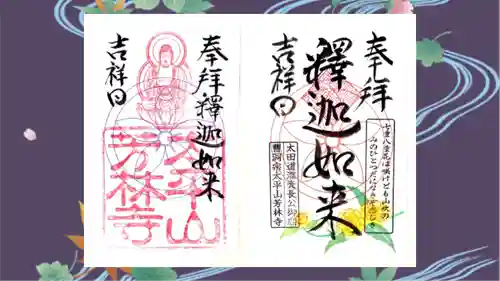 奉拝
釋迦如来
吉祥日
七重八重花は咲けども山吹の
みのひとつだになきぞ悲しき
太田道灌公
曹洞宗太平山芳林寺
奉拝釋迦如来
吉祥日
太平山
芳林寺